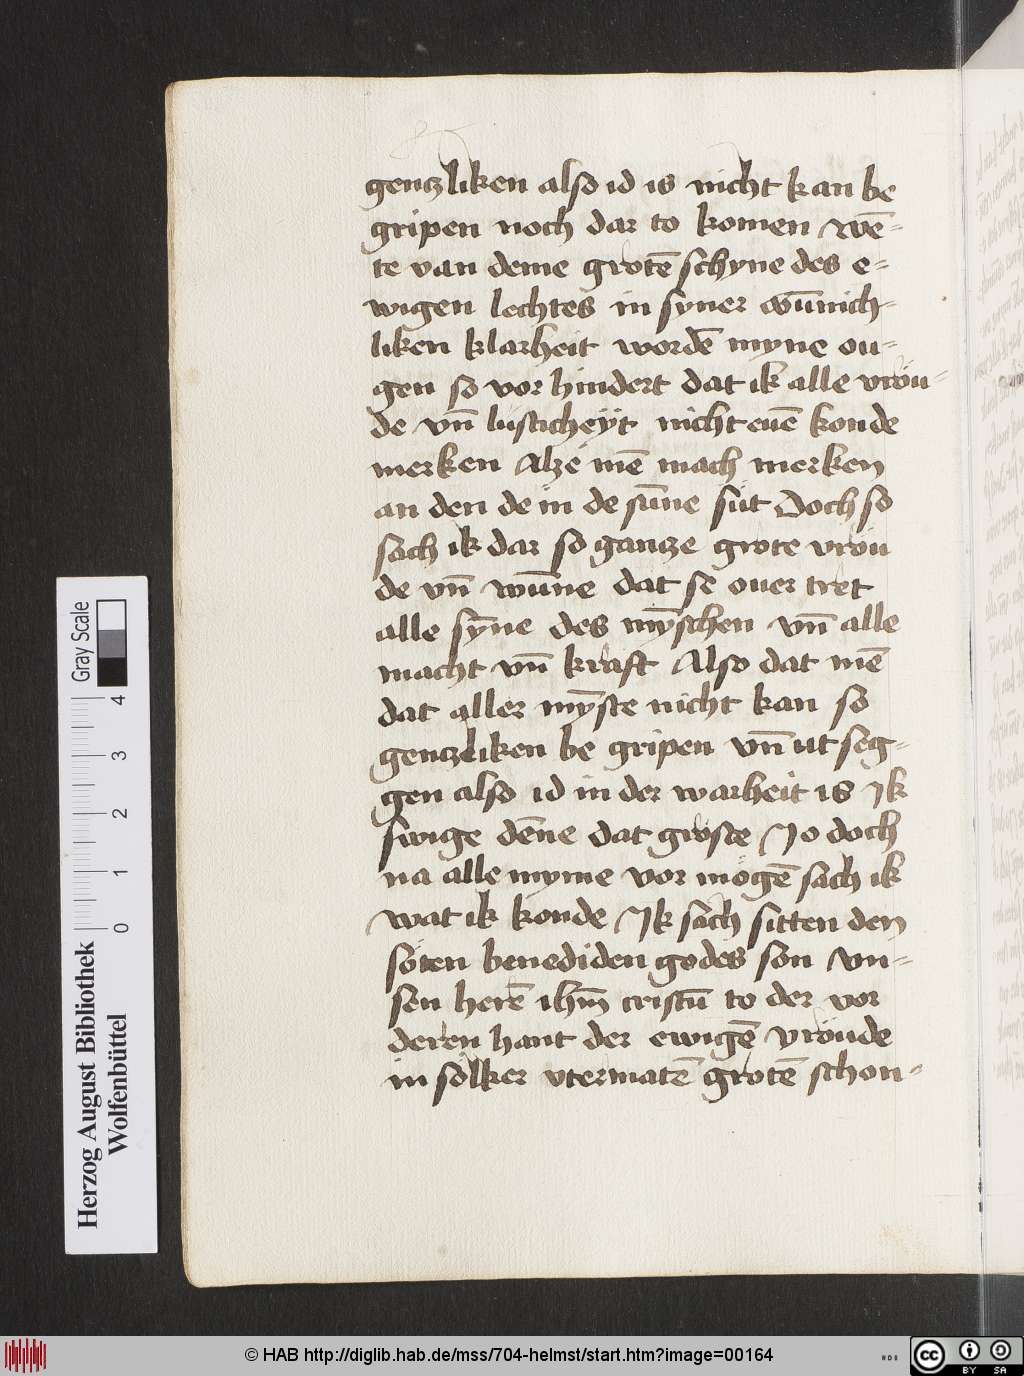 gentzliken also id is nicht kan be
gripen noch dar to komen wē-
te van deme grotē schyne des e-
wigen lechtes in syner wūnich
liken klarheit wordē myne ou-
gen so vor hindert dat ik alle vröu-
de vn̄ lusticheÿt nicht euē konde
merken Alze mē mach merken
an den de in de sūne süt Doch so
sach ik dar so gantze grote vröu
de vn̄ wūne dat se ouer tret
alle sȳne des mȳschen vn̄ alle
macht vn̄ kraft Also dat mē
dat aller mȳste nicht kan so
gentzliken be gripen vn̄ ut seg-
gen also id in der warheit is Ik
swige dēne dat gröste Jo doch
na alle myme vor mögē sach ik
wat ik konde Ik sach sitten den
söten benediden godes son vn-
sen herē ihm̄ cristū to der vor
deren hant der ewigē vröude
in sölker vtermatē grotē schon-
Herzog August Bibliothek
Wolfenbüttel
0 1 2 3 4
Gray Scale
© HAB http://diglib.hab.de/mss/704-helmst/start.htm?image=00164
cc BY SA